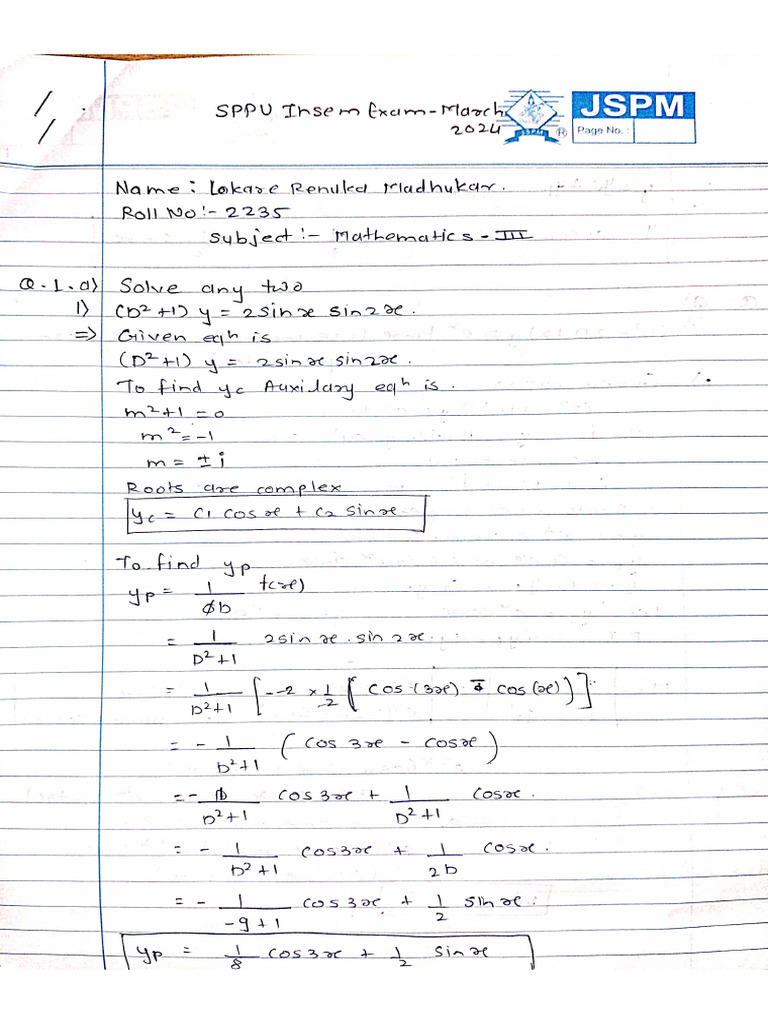 SPPU Insem Exam - March
2024
JSPM
Page No. :
Name : Lokare Renuka Madhukar.
Roll No :- 2235
Subject :- Mathematics - III
Q.1.a) Solve any two
1) (D²+1) y = 2sinx sin2x.
=> Given eqⁿ is
(D²+1) y = 2sinx sin2x.
To find yc Auxilary eqⁿ is.
m²+1 = 0
m² = -1
m = ± i
Roots are complex
yc = C1 cosx + C2 sinx
To find yp
yp = 1/ϕD f(x)
= 1/D²+1 2sinx. sin2x.
= 1/D²+1 [ --2 × 1/-2 ( cos (3x) - cos (x) ) ]
= - 1/D²+1 ( cos 3x - cosx )
= - 1/D²+1 cos3x + 1/D²+1 cosx.
= - 1/D²+1 cos3x + 1/2D cosx.
= - 1/-9+1 cos3x + 1/2 sinx.
yp = 1/8 cos3x + 1/2 sinx